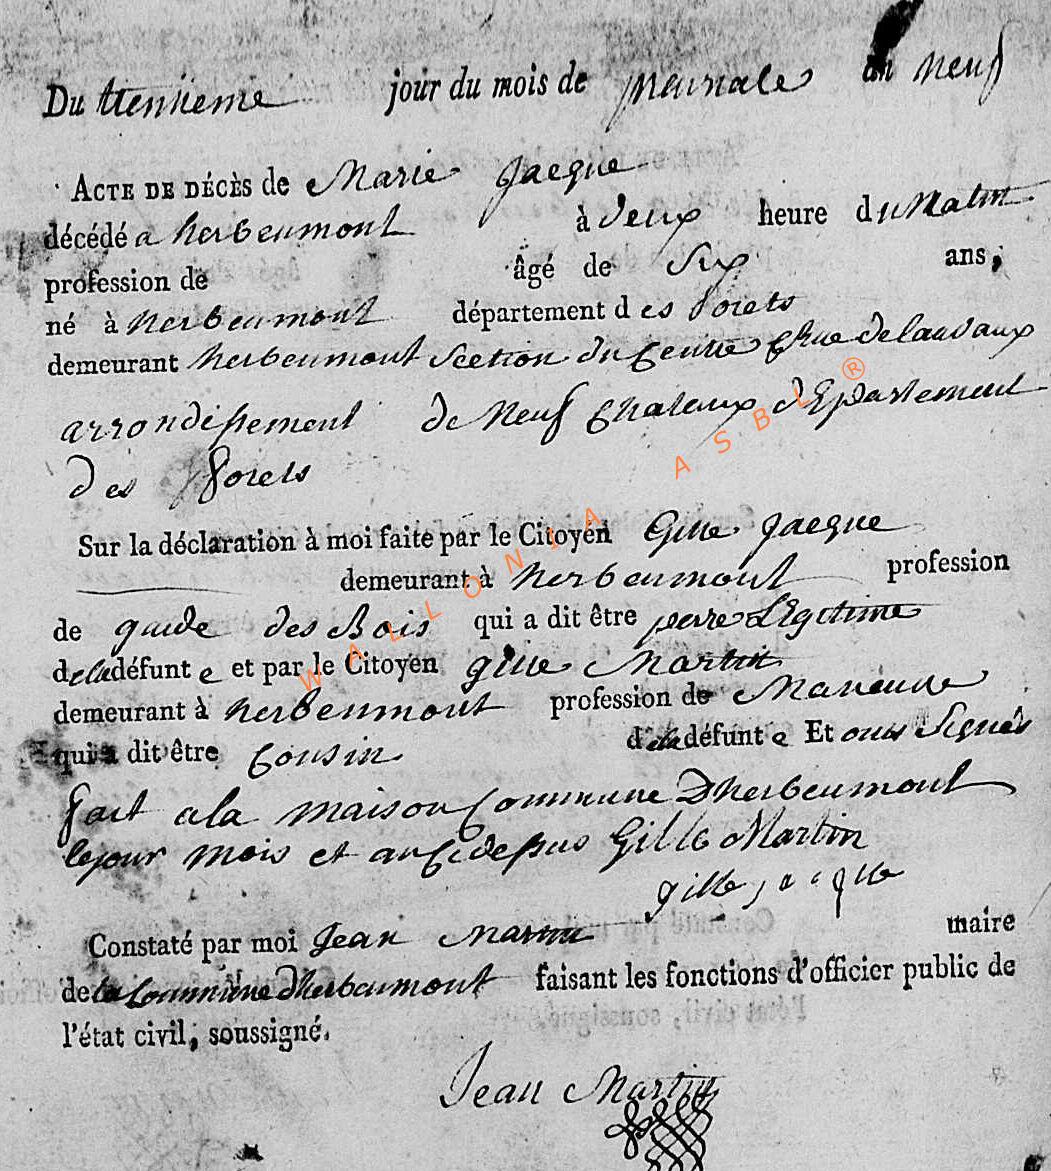 Du trentieme jour du mois de prairiale an neuf
ACTE DE DÉCÈS de Marie Jacque
décédé a herbeumont à deux heure du Matin
profession de âgé de Six ans,
né à herbeumont département des forets
demeurant herbeumont Section du Centre rue de lauvaux
arrondissement de Neuf Chateaux dEpartement
des forets
Sur la déclaration à moi faite par le Citoyen Gille Jacque
demeurant à herbeumont profession
de garde des Bois qui a dit être perre LEgitime
de la défunt e et par le Citoyen gille Martin
demeurant à herbeumont profession de Maneuvre
qui a dit être Cousin de la défunt e Et onts Signés
fait a la maison Commune Dherbeumont
le jour mois et an Cidessus Gille Martin
gille jacque
Constaté par moi Jean Martin maire
de la Commune dherbeumont faisant les fonctions d'officier public de
l'état civil, soussigné.
Jean Martin
WALLONIA ASBL ®